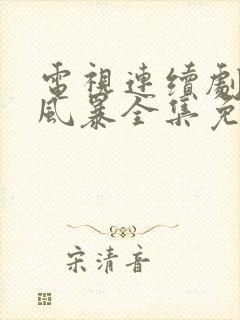 電視連續劇
風暴全集免
宋清音